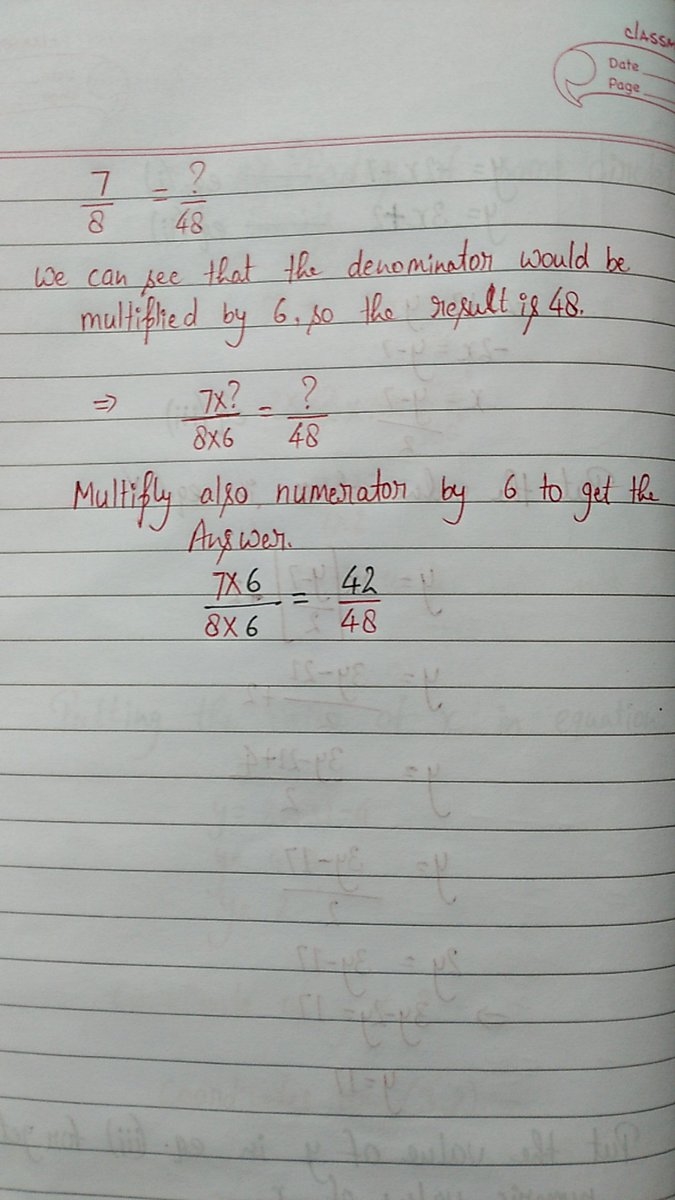 classm
Date
Page
7/8 = ?/48
We can see that the denominator would be
multiplied by 6, so the result is 48.
⇒ 7x?/8x6 = ?/48
Multiply also numerator by 6 to get the
Answer.
7x6/8x6 = 42/48